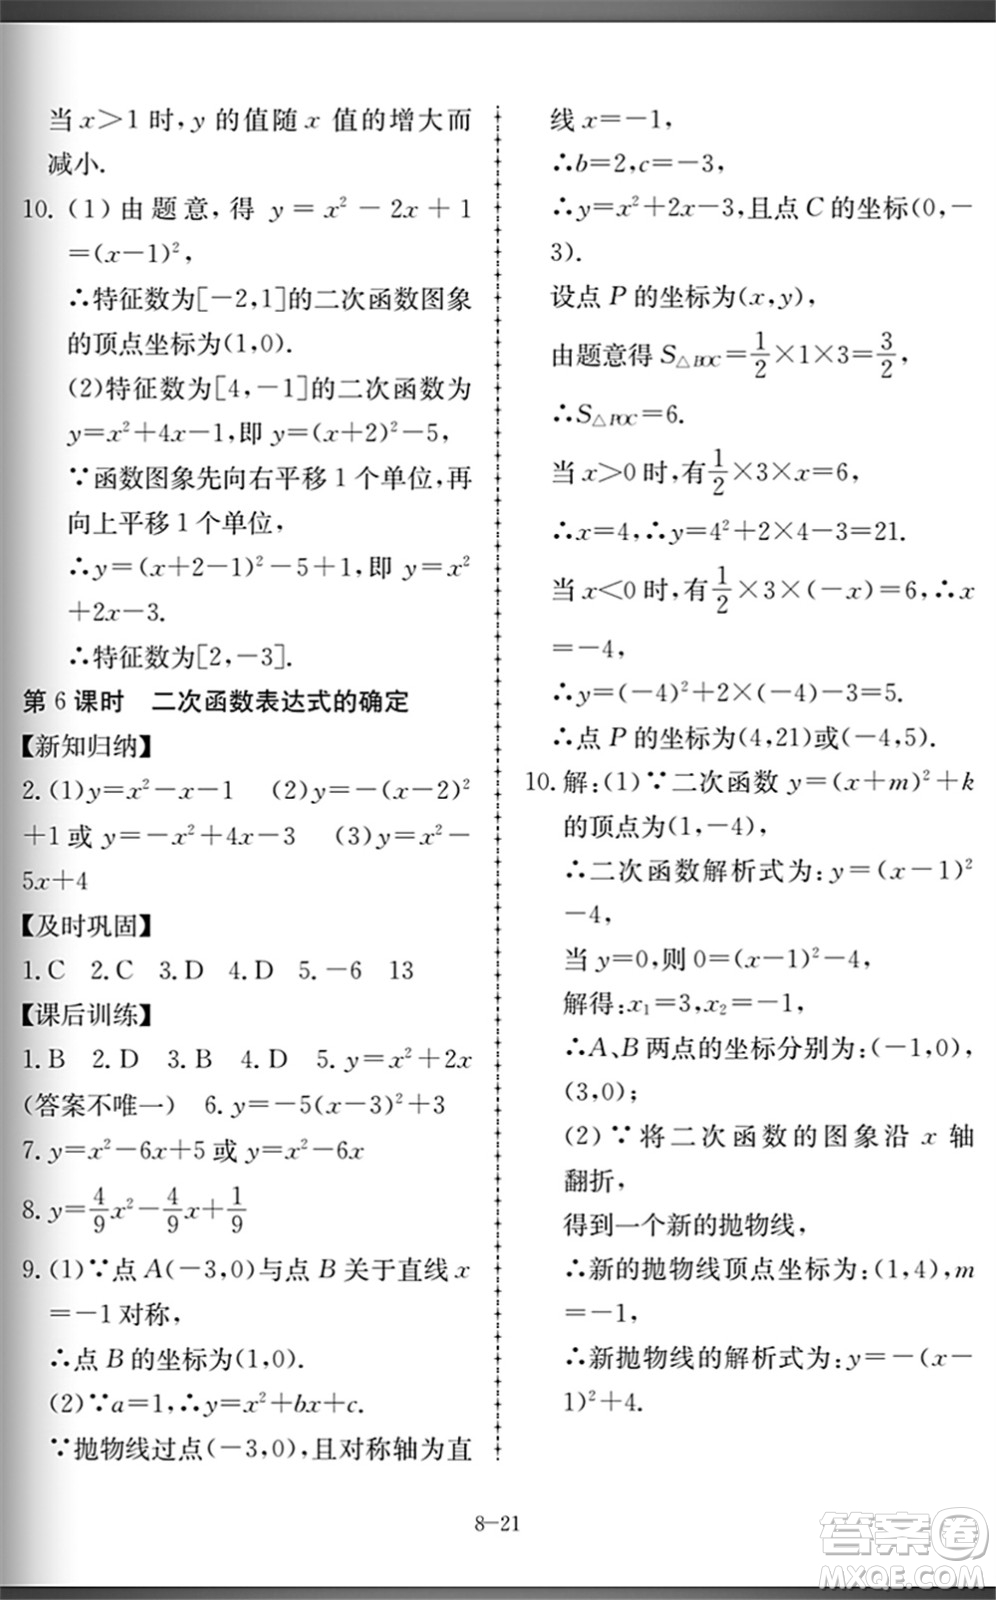 当 x＞1 时, y 的值随 x 值的增大而
减小.
10. (1) 由题意, 得 y=x²-2x+1
=(x-1)²,
∴特征数为[-2,1]的二次函数图象
的顶点坐标为(1,0).
(2)特征数为[4,-1]的二次函数为
y=x²+4x-1,即 y=(x+2)²-5,
∵函数图象先向右平移 1 个单位,再
向上平移 1 个单位,
∴y=(x+2-1)²-5+1,即 y=x²
+2x-3.
∴特征数为[2,-3].
第 6 课时 二次函数表达式的确定
【新知归纳】
2. (1)y=x²-x-1 (2)y=-(x-2)²
+1 或 y=-x²+4x-3 (3)y=x²-
5x+4
【及时巩固】
1. C 2. C 3. D 4. D 5. -6 13
【课后训练】
1. B 2. D 3. B 4. D 5. y=x²+2x
(答案不唯一) 6. y=-5(x-3)²+3
7. y=x²-6x+5 或 y=x²-6x
8. y=4/9x²-4/9x+1/9
9. (1)∵点 A(-3,0)与点 B 关于直线 x
=-1 对称,
∴点 B 的坐标为(1,0).
(2)∵a=1,∴y=x²+bx+c.
∵抛物线过点(-3,0),且对称轴为直
线 x=-1,
∴b=2,c=-3,
∴y=x²+2x-3,且点 C 的坐标(0,-
3).
设点 P 的坐标为(x,y),
由题意得 S△BOC=1/2×1×3=3/2,
∴S△POC=6.
当 x＞0 时,有1/2×3×x=6,
∴x=4,∴y=4²+2×4-3=21.
当 x＜0 时,有1/2×3×(-x)=6,∴x
=-4,
∴y=(-4)²+2×(-4)-3=5.
∴点 P 的坐标为(4,21)或(-4,5).
10. 解:(1)∵二次函数 y=(x+m)²+k
的顶点为(1,-4),
∴二次函数解析式为:y=(x-1)²
-4,
当 y=0,则 0=(x-1)²-4,
解得:x₁=3,x₂=-1,
∴A、B 两点的坐标分别为:(-1,0),
(3,0);
(2)∵将二次函数的图象沿 x 轴
翻折,
得到一个新的抛物线,
∴新的抛物线顶点坐标为:(1,4),m
=-1,
∴新抛物线的解析式为:y=-(x-
1)²+4.
8-21
答案卷
MXQE.COM